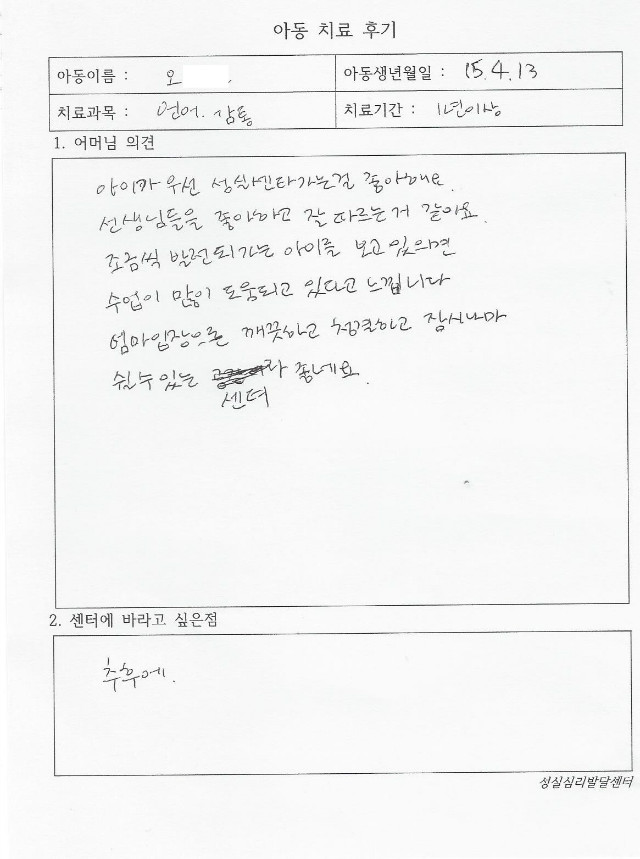 아동 치료 후기
아동이름 : 오 .
아동생년월일 : 15.4.13
치료과목 : 언어. 감통
치료기간 : 1년이상
1. 어머님 의견
아이가 우선 성실센타가는걸 좋아해요.
선생님들을 좋아하고 잘 따르는거 같아요.
조금씩 발전되가는 아이를 보고 있으면
수업이 많이 도움되고 있다고 느낍니다
엄마입장으론 깨끗하고 청결하고 잠시나마
쉴수 있는 라 좋네요.
센터
2. 센터에 바라고 싶은점
추후에.
성실심리발달센터